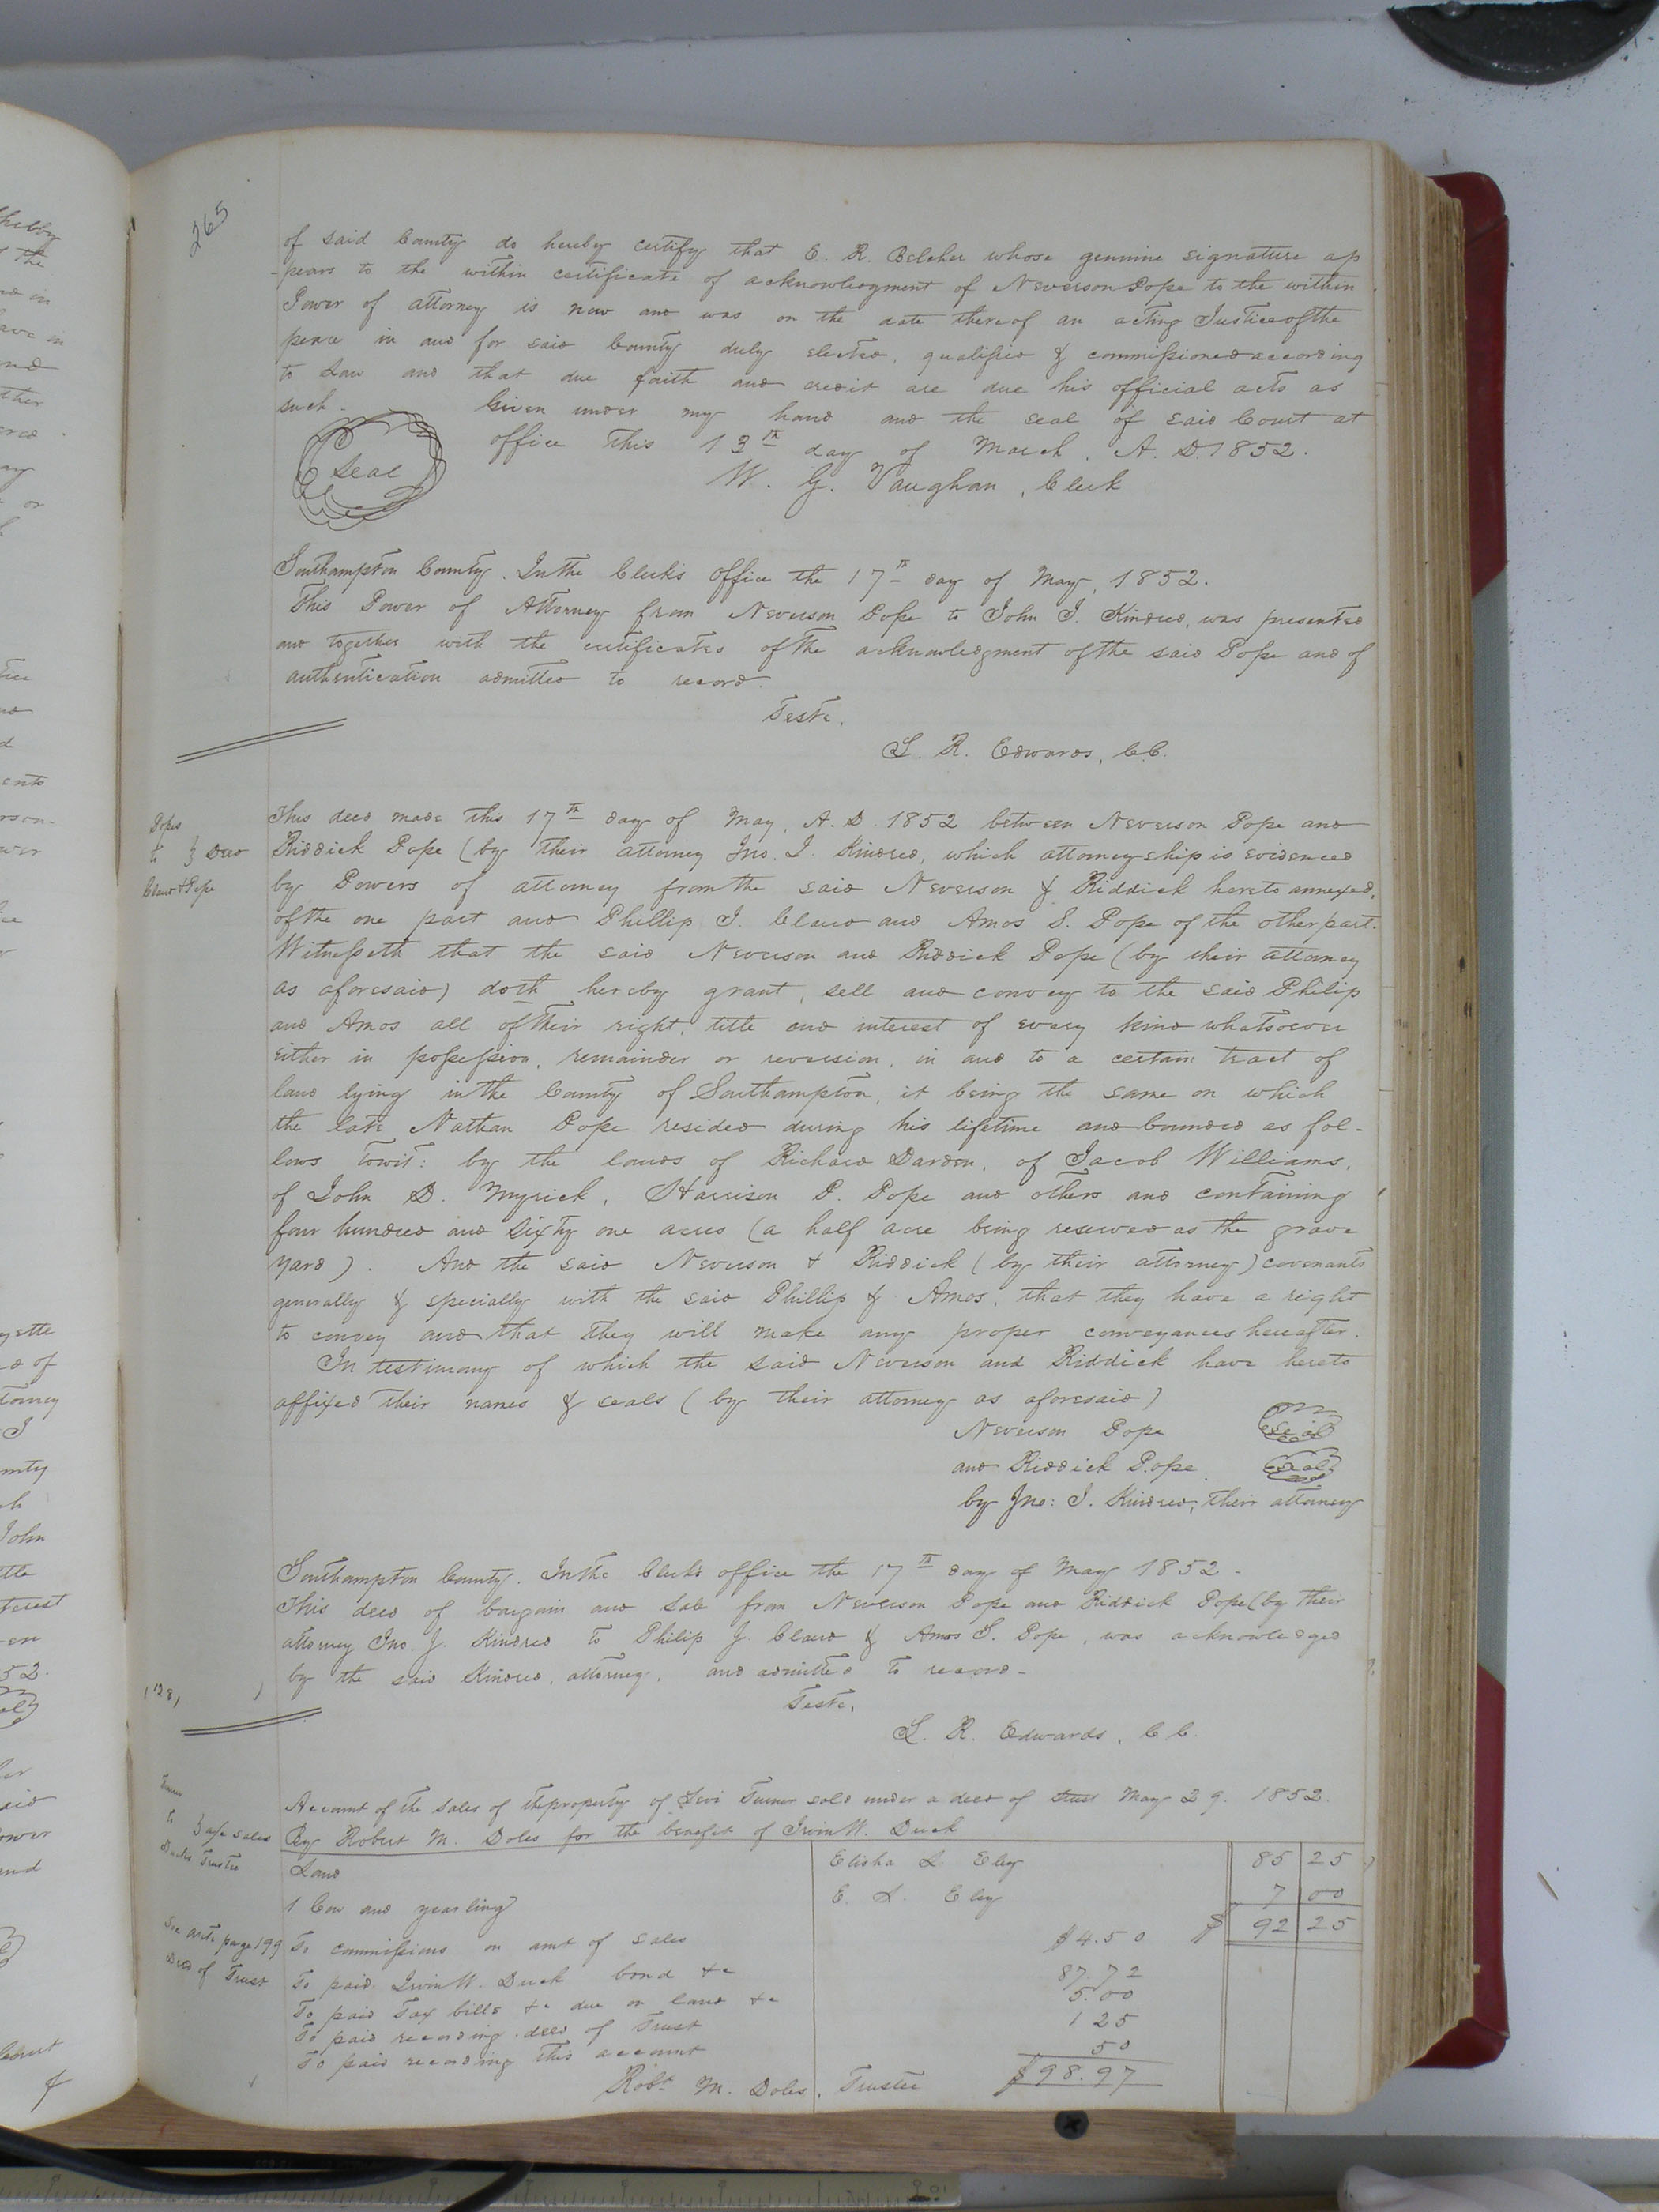 265
of said County do hereby certify that E. R. Belcher whose genuine signature ap
-pears to the within certificate of acknowledgment of Neverson Pope to the within
Power of attorney is now and was on the date thereof an acting Justice of the
peace in and for said County duly elected, qualified & commissioned according
to Law and that due faith and credit are due his official acts as
such. Given under my hand and the seal of said Court at
office this 13th day of March, A. D. 1852.
Seal
W. G. Vaughan, Clerk
Southampton County. In the Clerk's office the 17th day of May, 1852.
This Power of Attorney from Neverson Pope to John J. Kindred, was presented
and together with the certificates of the acknowledgment of the said Pope and of
authentication admitted to record.
Teste,
L. R. Edwards, C.C.
Popes
to } Deed
Claud & Pope
This deed made this 17th day of May, A. D. 1852 between Neverson Pope and
Riddick Pope (by their attorney Jno. J. Kindred, which attorneyship is evidenced
by Powers of attorney from the said Neverson & Riddick hereto annexed,
of the one part and Phillip J. Claud and Amos S. Pope of the other part.
Witnesseth that the said Neverson and Riddick Pope (by their attorney
as aforesaid) doth hereby grant, sell and convey to the said Philip
and Amos all of their right, title and interest of every kind whatsoever
either in possession, remainder or reversion, in and to a certain tract of
land lying in the County of Southampton, it being the same on which
the late Nathan Pope resided during his lifetime and bounded as fol-
lows towit: by the lands of Richard Darden, of Jacob Williams,
of John D. Myrick, Harrison P. Pope and others and containing
four hundred and Sixty one acres (a half acre being reserved as the grave
yard). And the said Neverson & Riddick (by their attorney) covenants
generally & specially with the said Phillip & Amos, that they have a right
to convey and that they will make any proper conveyances hereafter.
In testimony of which the said Neverson and Riddick have hereto
affixed their names & seals (by their attorney as aforesaid)
Neverson Pope Seal
and Riddick Pope Seal
by Jno: J. Kindred, their attorney
Southampton County. In the Clerks office the 17th day of May 1852.
This deed of bargain and Sale from Neverson Pope and Riddick Pope (by their
attorney Jno. J. Kindred to Philip J. Claud & Amos S. Pope, was acknowledged
by the said Kindred, attorney, and admitted to record.
(128)
Teste,
L. R. Edwards, C C.
to } a/c sales
Ducks Trustee
Account of the Sales of the property of Levi Turner sold under a deed of trust May 29. 1852.
By Robert M. Doles for the benefit of Irvin W. Duck
Land Elisha L Eley 85 25
1 Cow and yearling E. L. Eley 7 00
$ 92 25
See ante page 199
Deed of Trust
To commissions on amt of sales $4.50
To paid Irvin W. Duck bond &c 87.72
To paid Tax bills &c due on land &c 5.00
To paid recording deed of Trust 1 25
To paid recording this account 50
Robt. M. Doles, Trustee $98.97